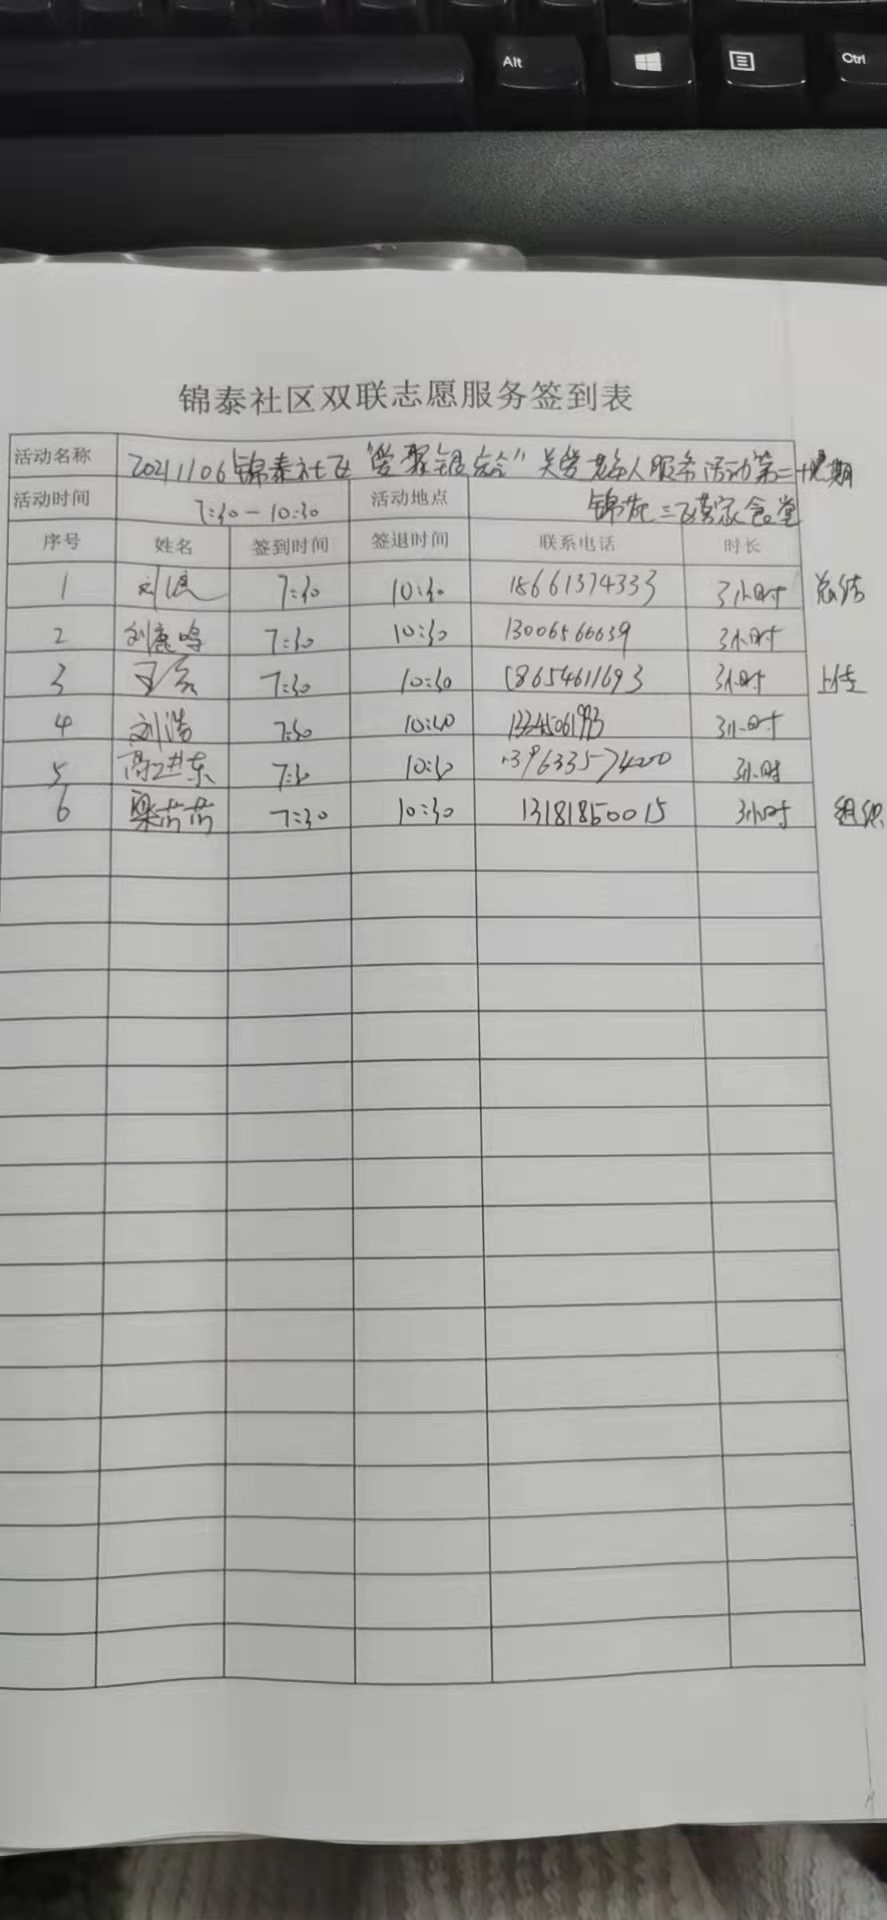 Alt
Ctrl
锦泰社区双联志愿服务签到表
活动名称 20211106锦泰社区"爱聚银龄"关爱老年人服务活动第二十 期
活动时间 7:30-10:30 活动地点 锦苑三区 食堂
序号 姓名 签到时间 签退时间 联系电话 时长
1 刘 7:30 10:30 18661374333 3小时 总结
2 刘鹿鸣 7:30 10:30 13006566639 3小时
3 王 7:30 10:30 18654611693 3小时 上传
4 刘浩 7:30 10:30 13345061993 3小时
5 7:30 10:30 3小时
6 梁芮芮 7:30 10:30 13181850015 3小时 组织